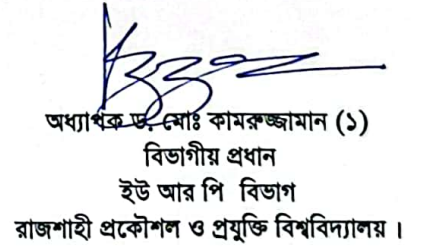 অধ্যাপক ড. মোঃ কামরুজ্জামান (১)
বিভাগীয় প্রধান
ইউ আর পি বিভাগ
রাজশাহী প্রকৌশল ও প্রযুক্তি বিশ্ববিদ্যালয় ।